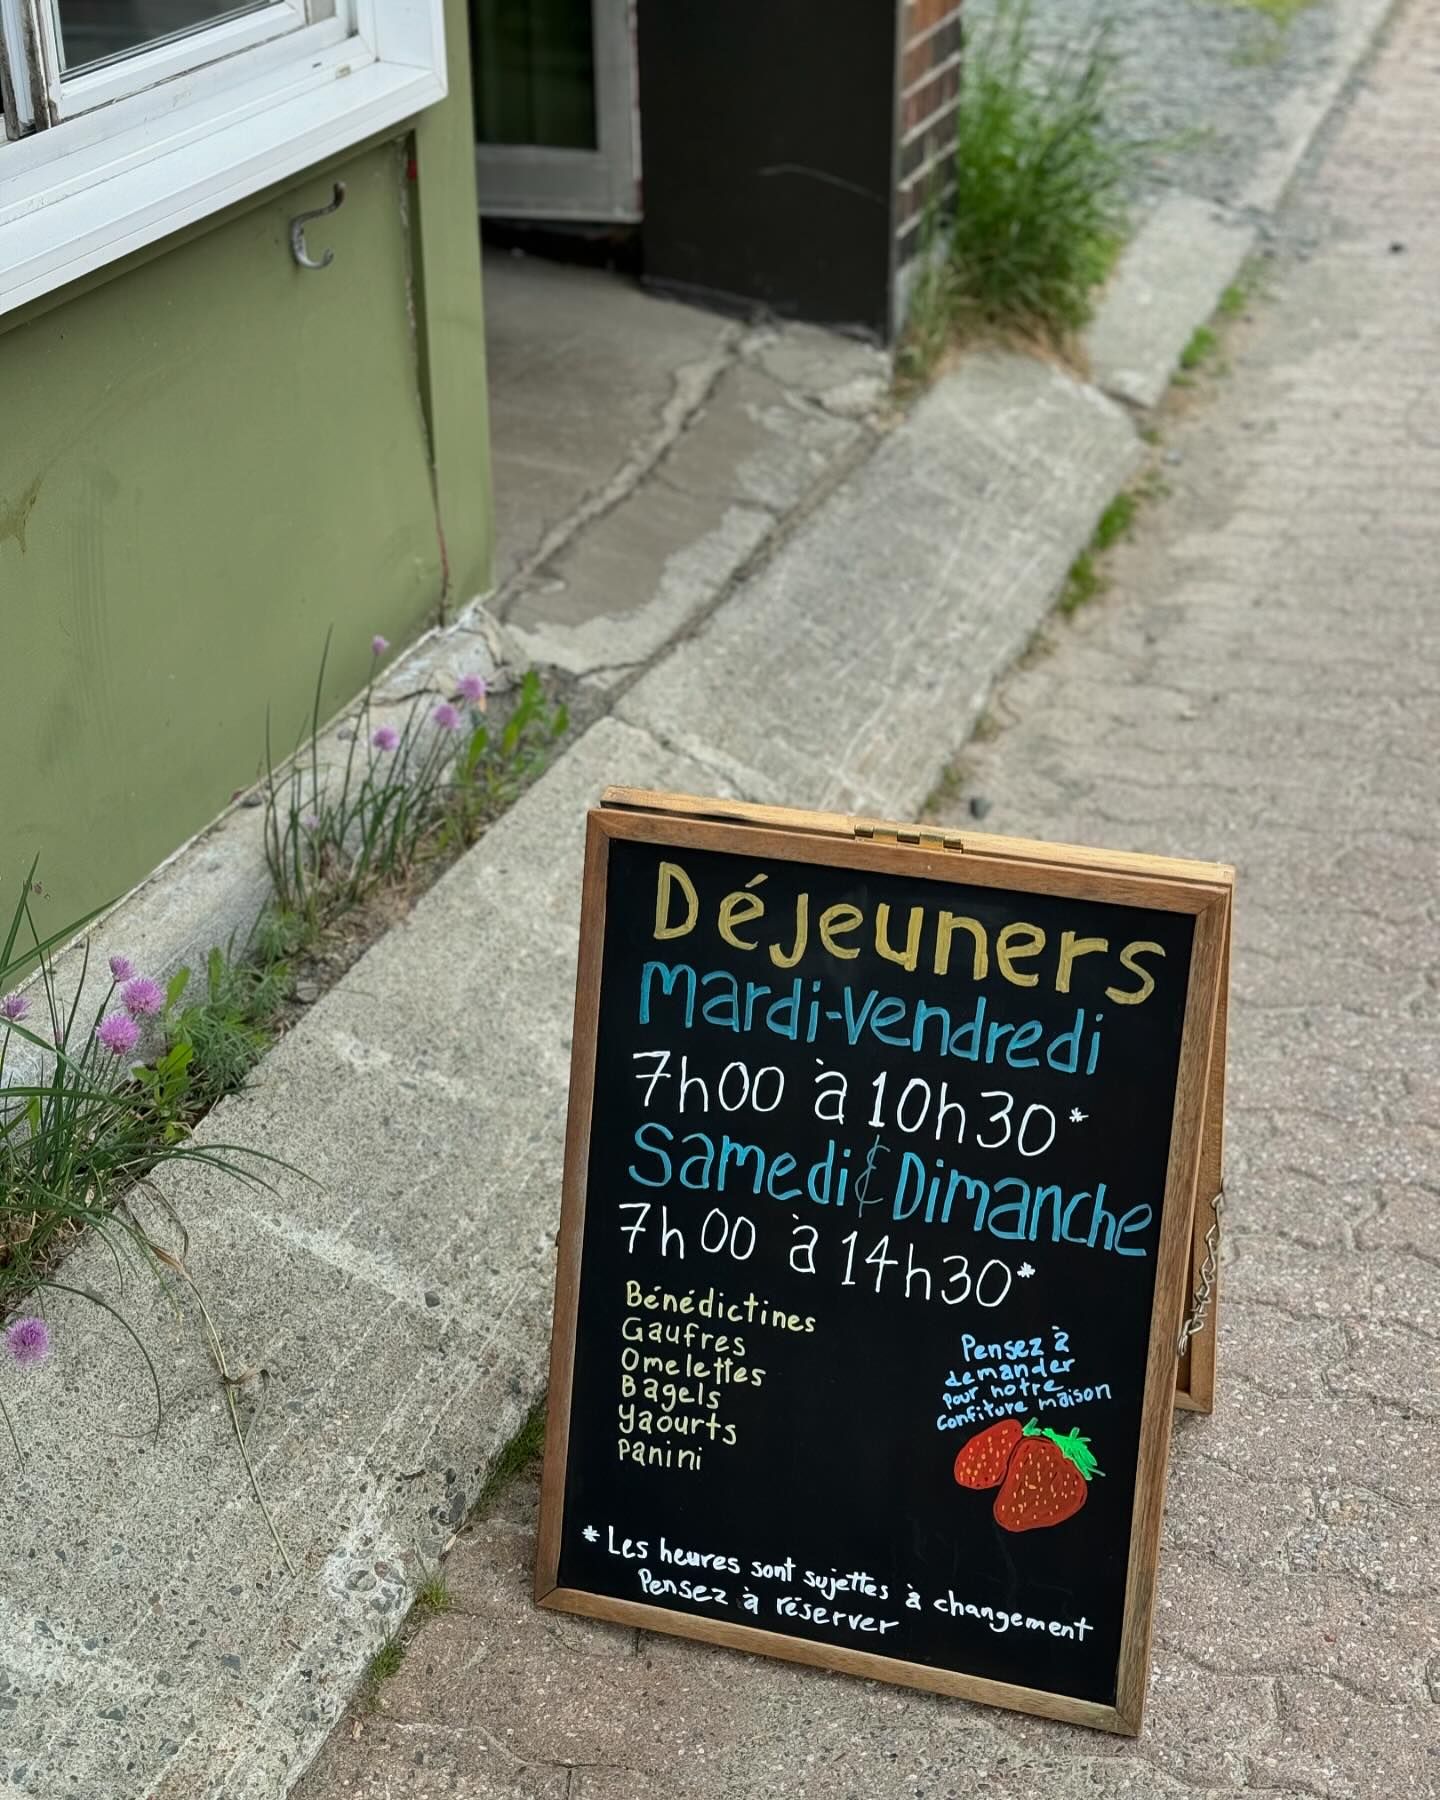 Déjeuners
Mardi-Vendredi
7h00 à 10h30*
Samedi & Dimanche
7h00 à 14h30*
Bénédictines
Gaufres
Omelettes
Bagels
Yaourts
Panini
Pensez à
demander
pour notre
confiture maison
* Les heures sont sujettes à changement
Pensez à réserver